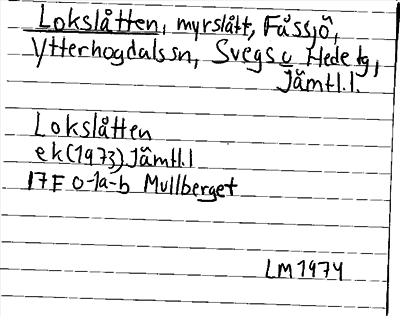 Lokslåtten, myrslått, Fåssjö,
Ytterhogdalssn, Svegs o Hede tg,
Jämtl.l.
Lokslåtten
ek(1973) Jämtl.l
17F 0-1a-b Mullberget
LM 1974